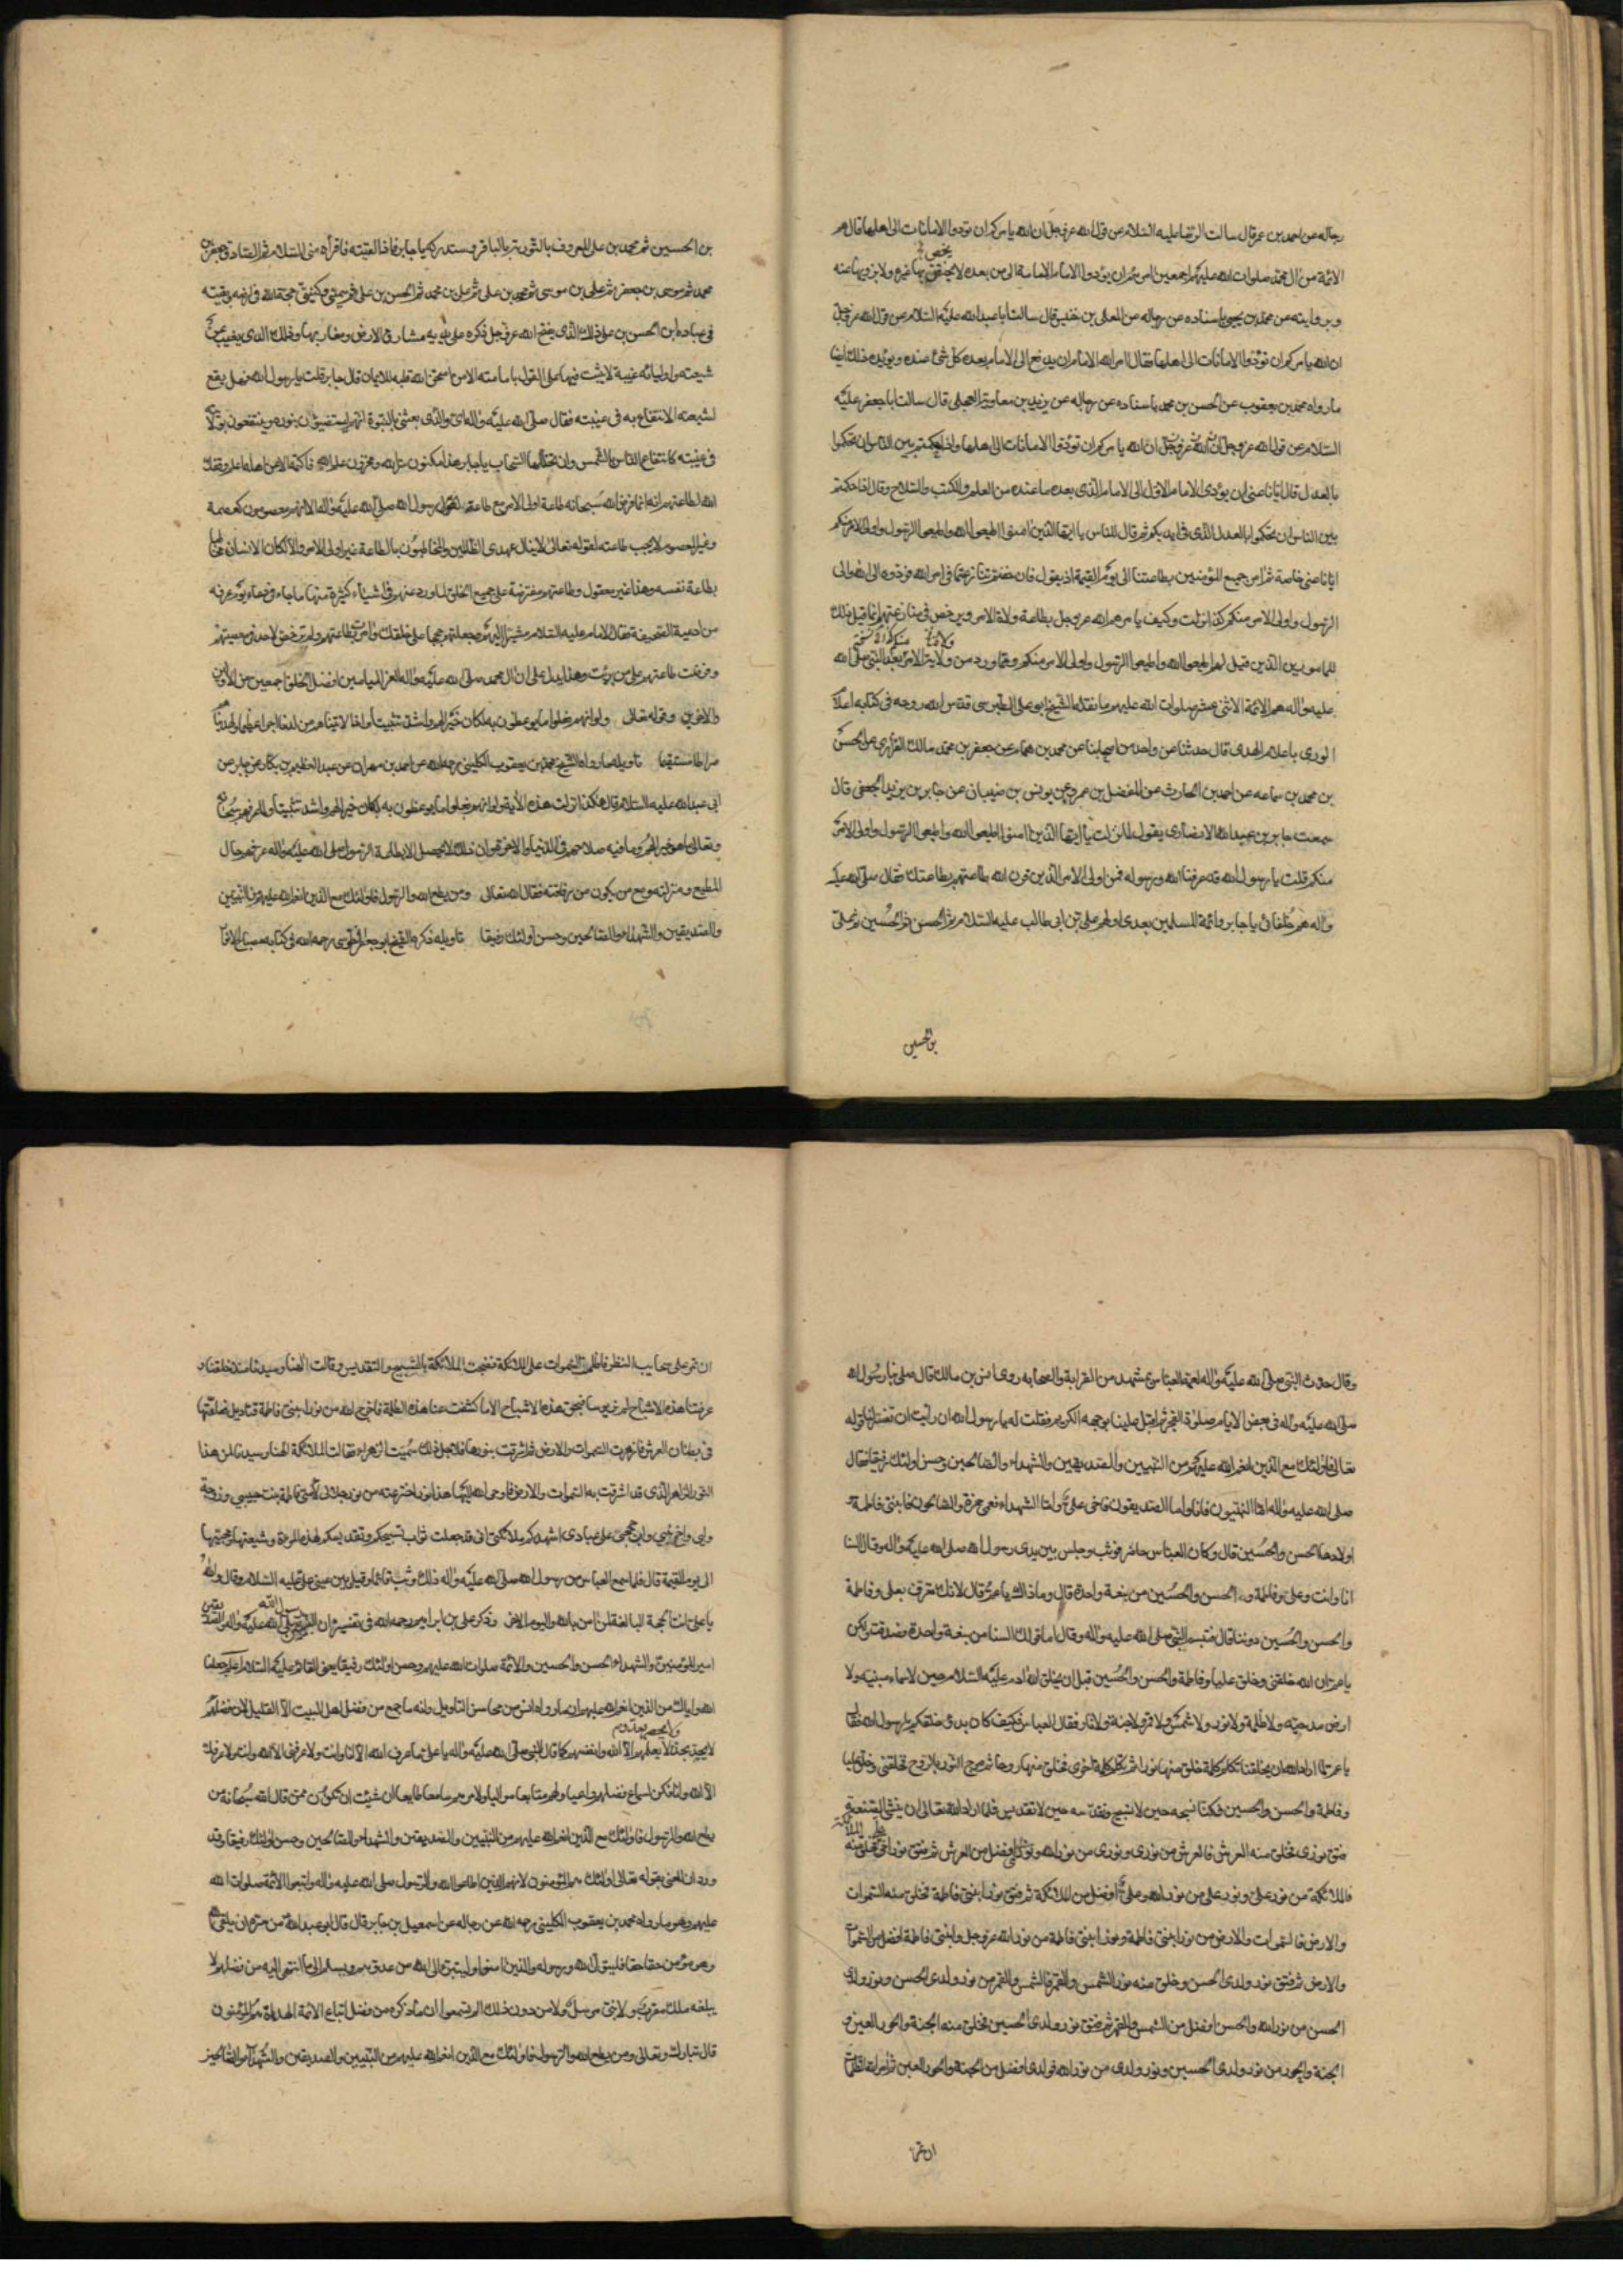 رجاله عن احمد بن عمر قال سالت الرضا عليه السلام عن قول الله عز وجل ان الله يامركم ان تودوا الامانات الى اهلها قال هم
الائمة من ال محمد صلوات الله عليهم اجمعين امرهم ان يودوا الامام الامامة الى من بعده لا يخص بها غيره ولا يزويها عنه
وبروايته عن محمد بن يحيى باسناده عن رجاله عن المعلى بن خنيس قال سالت ابا عبدالله عليه السلام عن قول الله عز وجل
ان الله يامركم ان تؤدوا الامانات الى اهلها فقال امر الله الامام ان يدفع الى الامام بعده كل شئ عنده ويؤيده ذلك ايضا
ما رواه محمد بن يعقوب عن الحسن بن محمد باسناده عن رجاله عن بريد بن معاوية العجلي قال سالت ابا جعفر عليه
السلام عن قول الله عز وجل ان الله يامركم ان تؤدوا الامانات الى اهلها واذا حكمتم بين الناس ان تحكموا
بالعدل قال ايانا عنى ان يؤدى الامام الاول الى الامام الذى بعده ما عنده من العلم والكتب والسلاح وقال اذا حكمتم
بين الناس ان تحكموا بالعدل الذى فى ايديكم ثم قال للناس يا ايها الذين امنوا اطيعوا الله واطيعوا الرسول واولى الامر منكم
ايانا عنى خاصة ثم امر جميع المؤمنين بطاعتنا الى يوم القيمة اذ يقول فان خفتم تنازعا فى امر الله فردوه الى الله والى
الرسول واولى الامر منكم كذا نزلت وكيف يامرهم الله عز وجل بطاعة ولاة الامر ويرخص فى منازعتهم انما قيل ذلك
للمامورين الذين قيل لهم اطيعوا الله واطيعوا الرسول واولى الامر منكم ومما ورد من ولاية الامر بعد النبى صلى الله
عليه واله هم الائمة الاثنى عشر صلوات الله عليهم ما نقله الشيخ ابو على الطبرسى قدس الله روحه فى كتابه اعلام
الورى باعلام الهدى قال حدثنا عن واحد من اصحابنا عن محمد بن همام عن جعفر بن محمد مالك الفزارى عن الحسن
بن محمد بن سماعه عن احمد بن الحارث عن المفضل بن عمر عن يونس بن ضبيان عن جابر بن يزيد الجعفى قال
سمعت جابر بن عبدالله الانصارى يقول لما نزلت يا ايها الذين امنوا اطيعوا الله واطيعوا الرسول واولى الامر
منكم قلت يا رسول الله قد عرفنا الله ورسوله فمن اولى الامر الذين قرن الله طاعتهم بطاعتك فقال صلى الله عليه
واله هم خلفائى يا جابر وائمة المسلمين بعدى اولهم على بن ابى طالب عليه السلام ثم الحسن ثم الحسين ثم على
بن الحسين
بن الحسين ثم محمد بن على المعروف بالتورية بالباقر وستدركه يا جابر فاذا لقيته فاقرأه منى السلام ثم الصادق جعفر بن
محمد ثم موسى بن جعفر ثم على بن موسى ثم محمد بن على ثم على بن محمد ثم الحسن بن على ثم سميى وكنيتى حجة الله فى ارضه وبقيته
فى عباده ابن الحسن بن على ذلك الذى يفتح الله عز وجل ذكره على يديه مشارق الارض ومغاربها وذلك الذى يغيب عن
شيعته واوليائه غيبة لا يثبت فيها على القول بامامته الا من امتحن الله قلبه للايمان قال جابر قلت يا رسول الله وهل يقع
لشيعته الانتفاع به فى غيبته فقال صلى الله عليه واله اى والذى بعثنى بالنبوة انهم ليستضيئون بنوره وينتفعون بولايته
فى غيبته كانتفاع الناس بالشمس وان تجللها السحاب يا جابر هذا مكنون سر الله ومخزون علم الله فاكتمه الا عن اهله اعلم وفقك
الله لطاعتهم انه انما قرن الله سبحانه طاعة اولى الامر مع طاعة رسول الله صلى الله عليه واله لانهم معصومون كعصمته
وغير المعصوم لا يجب طاعته لقوله تعالى لا ينال عهدى الظالمين والمخاطبون بالطاعة غير اولى الامر والا لكان الانسان مخاطبا
بطاعة نفسه وهذا غير معقول وطاعتهم مفترضة على جميع الخلق لما ورد عنهم فى اشياء كثيرة منها ما جاء فى دعاء يوم عرفة
من ادعية الصحيفة فقال الامام عليه السلام مشيرا اليهم وجعلتهم حججا على خلقك وامرت بطاعتهم ولم ترخص لاحد فى معصيتهم
وفرضت طاعتهم على من برئت وهذا يدل على ان ال محمد صلى الله عليه واله الغر الميامين افضل الخلق اجمعين من الاولين
والاخرين وقوله تعالى ولو انهم فعلوا ما يوعظون به لكان خيرا لهم واشد تثبيتا واذا لاتيناهم من لدنا اجرا عظيما ولهديناهم
صراطا مستقيما تاويله ما رواه الشيخ محمد بن يعقوب الكلينى رحمه الله عن احمد بن مهران عن عبد العظيم بن بكار عن جابر عن
ابى عبدالله عليه السلام قال هكذا نزلت هذه الاية ولو انهم فعلوا ما يوعظون به لكان خيرا لهم واشد تثبيتا
وتعالى ما هو خير لهم وما فيه صلاحهم فى الدنيا والاخرة وان ذلك لا يحصل الا بطاعة الرسول صلى الله عليه واله عرفهم حال
المطيع ومنزلته ومع من يكون من رفاقته فقال الله تعالى ومن يطع الله والرسول فاولئك مع الذين انعم الله عليهم من النبيين
والصديقين والشهداء والصالحين وحسن اولئك رفيقا تاويله ذكره الشيخ ابو جعفر الطوسى رحمه الله فى كتابه مصباح الانوار
وقال حدث النبى صلى الله عليه واله لعمه العباس بمشهد من القرابة والصحابه روى انس بن مالك قال صلى بنا رسول الله
صلى الله عليه واله فى بعض الايام صلوة الفجر ثم اقبل علينا بوجهه الكريم فقلت له يا رسول الله ان رايت ان تفسر لنا قوله
تعالى فاولئك مع الذين انعم الله عليهم من النبيين والصديقين والشهداء والصالحين وحسن اولئك رفيقا فقال
صلى الله عليه واله اما النبيون فانا واما الصديقون فاخى على واما الشهداء فعمى حمزة والصالحون فابنتى فاطمة
اولادها الحسن والحسين قال وكان العباس حاضر فوثب وجلس بين يدى رسول الله صلى الله عليه واله وقال السنا
انا وانت وعلى وفاطمة والحسن والحسين من بيعة واحدة قال وما ذاك يا عم قال لانك تعرف بعلى وفاطمة
والحسن والحسين دوننا قال فتبسم النبى صلى الله عليه واله وقال اما قولك السنا من بيعة واحدة فصدقت ولكن
يا عم ان الله خلقنى وخلق عليا وفاطمة والحسن والحسين قبل ان يخلق الله ادم عليه السلام حين لا سماء مبنيه ولا
ارض مدحيه ولا ظلمة ولا نور ولا شمس ولا قمر ولا جنة ولا نار فقال العباس فكيف كان بدؤ خلقكم يا رسول الله فقال
يا عم لما اراد الله ان يخلقنا تكلم كلمة خلق منها نورا ثم تكلم كلمة اخرى فخلق منها روحا ثم مزج النور بالروح فخلقنى وخلق عليا
وفاطمة والحسن والحسين فكنا نسبحه حين لا تسبيح ونقدسه حين لا تقديس فلما اراد الله تعالى ان ينشئ الصنعة
فتق نورى فخلق منه العرش فالعرش من نورى ونورى من نور الله ونورى افضل من العرش ثم فتق نور اخى على فخلق منه الملائكة
فالملائكة من نور على ونور على من نور الله وعلى افضل من الملائكة ثم فتق نور ابنتى فاطمة فخلق منه السموات
والارض فالسموات والارض من نور ابنتى فاطمة ونور ابنتى فاطمة من نور الله عز وجل وابنتى فاطمة افضل من السموات
والارض ثم فتق نور ولدى الحسن وخلق منه نور الشمس والقمر فالشمس والقمر من نور ولدى الحسن ونور ولدى
الحسن من نور الله والحسن افضل من الشمس والقمر ثم فتق نور ولدى الحسين فخلق منه الجنة والحور العين
الجنة والحور من نور ولدى الحسين ونور ولدى من نور الله فولدى افضل من الجنة والحور العين ثم امر الله الظلمات
ان تمر
ان تمر على سحايب النظر فاظلمت السموات على الملائكة فضجت الملائكة بالتسبيح والتقديس وقالت الهنا وسيدنا منذ خلقتنا و
عرفتنا هذه الاشباح لم نر بؤسا فبحق هذه الاشباح الا ما كشفت عنا هذه الظلمة فاخرج الله من نور ابنتى فاطمة قناديل فعلقها
فى بطنان العرش فازهرت السموات والارض ثم اشرقت بنورها فلاجل ذلك سميت الزهراء فقالت الملائكة الهنا وسيدنا لمن هذا
النور الزاهر الذى قد اشرقت به السموات والارض فاوحى الله اليها هذا نور اخترعته من نور جلالى لامتى فاطمة بنت حبيبى وزوجة
وليى واخو نبيى وابو حججى على عبادى اشهدكم ملائكتى انى قد جعلت ثواب تسبيحكم وتقديسكم لهذه المرءة وشيعتها ومحبيها
الى يوم القيمة قال فلما سمع العباس من رسول الله صلى الله عليه واله ذلك وثب قائما وقبل بين عينى على عليه السلام وقال والله
يا على انت الحجة البالغة لمن امن بالله واليوم الاخر وذكر على بن ابراهيم رحمه الله فى تفسيره ان النبيين رسول الله صلى الله عليه واله والصديقين
امير المؤمنين والشهداء الحسن والحسين والائمة صلوات الله عليهم وحسن اولئك رفيقا يعنى القائم عليه السلام اعلم جعلنا
الله واياك من الذين انعم الله عليهم ان ما رواه انس من محاسن التاويل وانه ما جمع من فضل اهل البيت الا القليل لان فضلهم
لا يعلمهم الا الله وانفسهم كما قال النبى صلى الله عليه واله يا على ما عرف الله الا انا وانت ولا عرفنى الا الله وانت ولا عرفك
الا الله وانا فكن لسماع فضلهم واعيا ولهم متابعا مواليا ولامرهم سامعا طايعا ان شئت ان تكون ممن قال الله سبحانه من
يطع الله والرسول فاولئك مع الذين انعم الله عليهم من النبيين والصديقين والشهداء والصالحين وحسن اولئك رفيقا وقد
ورد ان المعنى بقوله تعالى اولئك هم المؤمنون لانهم الذين اطاعوا الله والرسول صلى الله عليه واله واتبعوا الائمة صلوات الله
عليهم وهو ما رواه محمد بن يعقوب الكلينى رحمه الله عن رجاله عن اسمعيل بن جابر قال قال ابو عبدالله من سره ان يلقى الله
وهو مؤمن حقا حقا فليتول الله ورسوله والذين امنوا وليتبرء الى الله من عدوهم ويسلم الى ما انتهى اليه من فضلهم لا
يبلغه ملك مقرب ولا نبى مرسل ولا من دون ذلك الم تسمعوا ان ما ذكره من فضل اتباع الائمة الهداة هم المؤمنون
قال تبارك وتعالى ومن يطع الله والرسول فاولئك مع الذين انعم الله عليهم من النبيين والصديقين والشهداء والصالحين